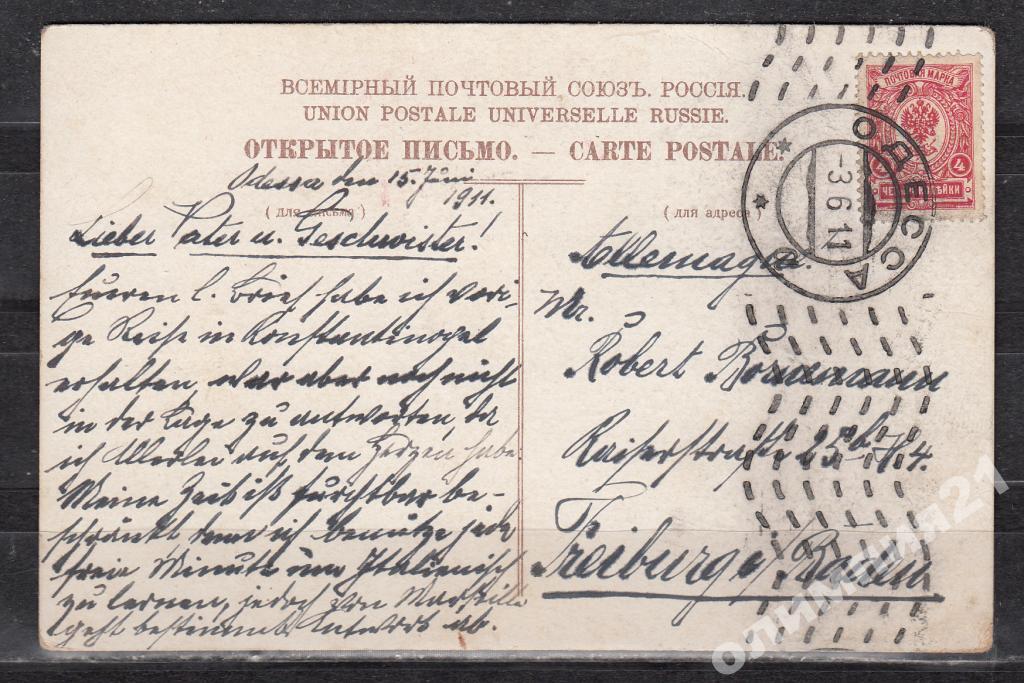 ВСЕМІРНЫЙ ПОЧТОВЫЙ СОЮЗЪ. РОССІЯ.
UNION POSTALE UNIVERSELLE RUSSIE.
ОТКРЫТОЕ ПИСЬМО. — CARTE POSTALE.
Odessa den 15. Juni
1911.
(для письма)
Lieber Vater u. Geschwister!
Eueren l. Brief habe ich vori-
ge Reise in Konstantinopel
erhalten, war aber noch nicht
in der Lage zu antworten, da
ich Allerlei auf dem Herzen habe.
Meine Zeit ist furchtbar be-
schränkt denn ich benütze jede
freie Minute um Italienisch
zu lernen, jedoch von Marseille
geht bestimmt Antwort ab.
(для адреса)
Allemagne.
Mr.
Robert
Kaiserstraße 25
Freiburg i/Baden
ПОЧТОВАЯ МАРКА
4 4
ОДЕССА
-3.6.11
олимпия21